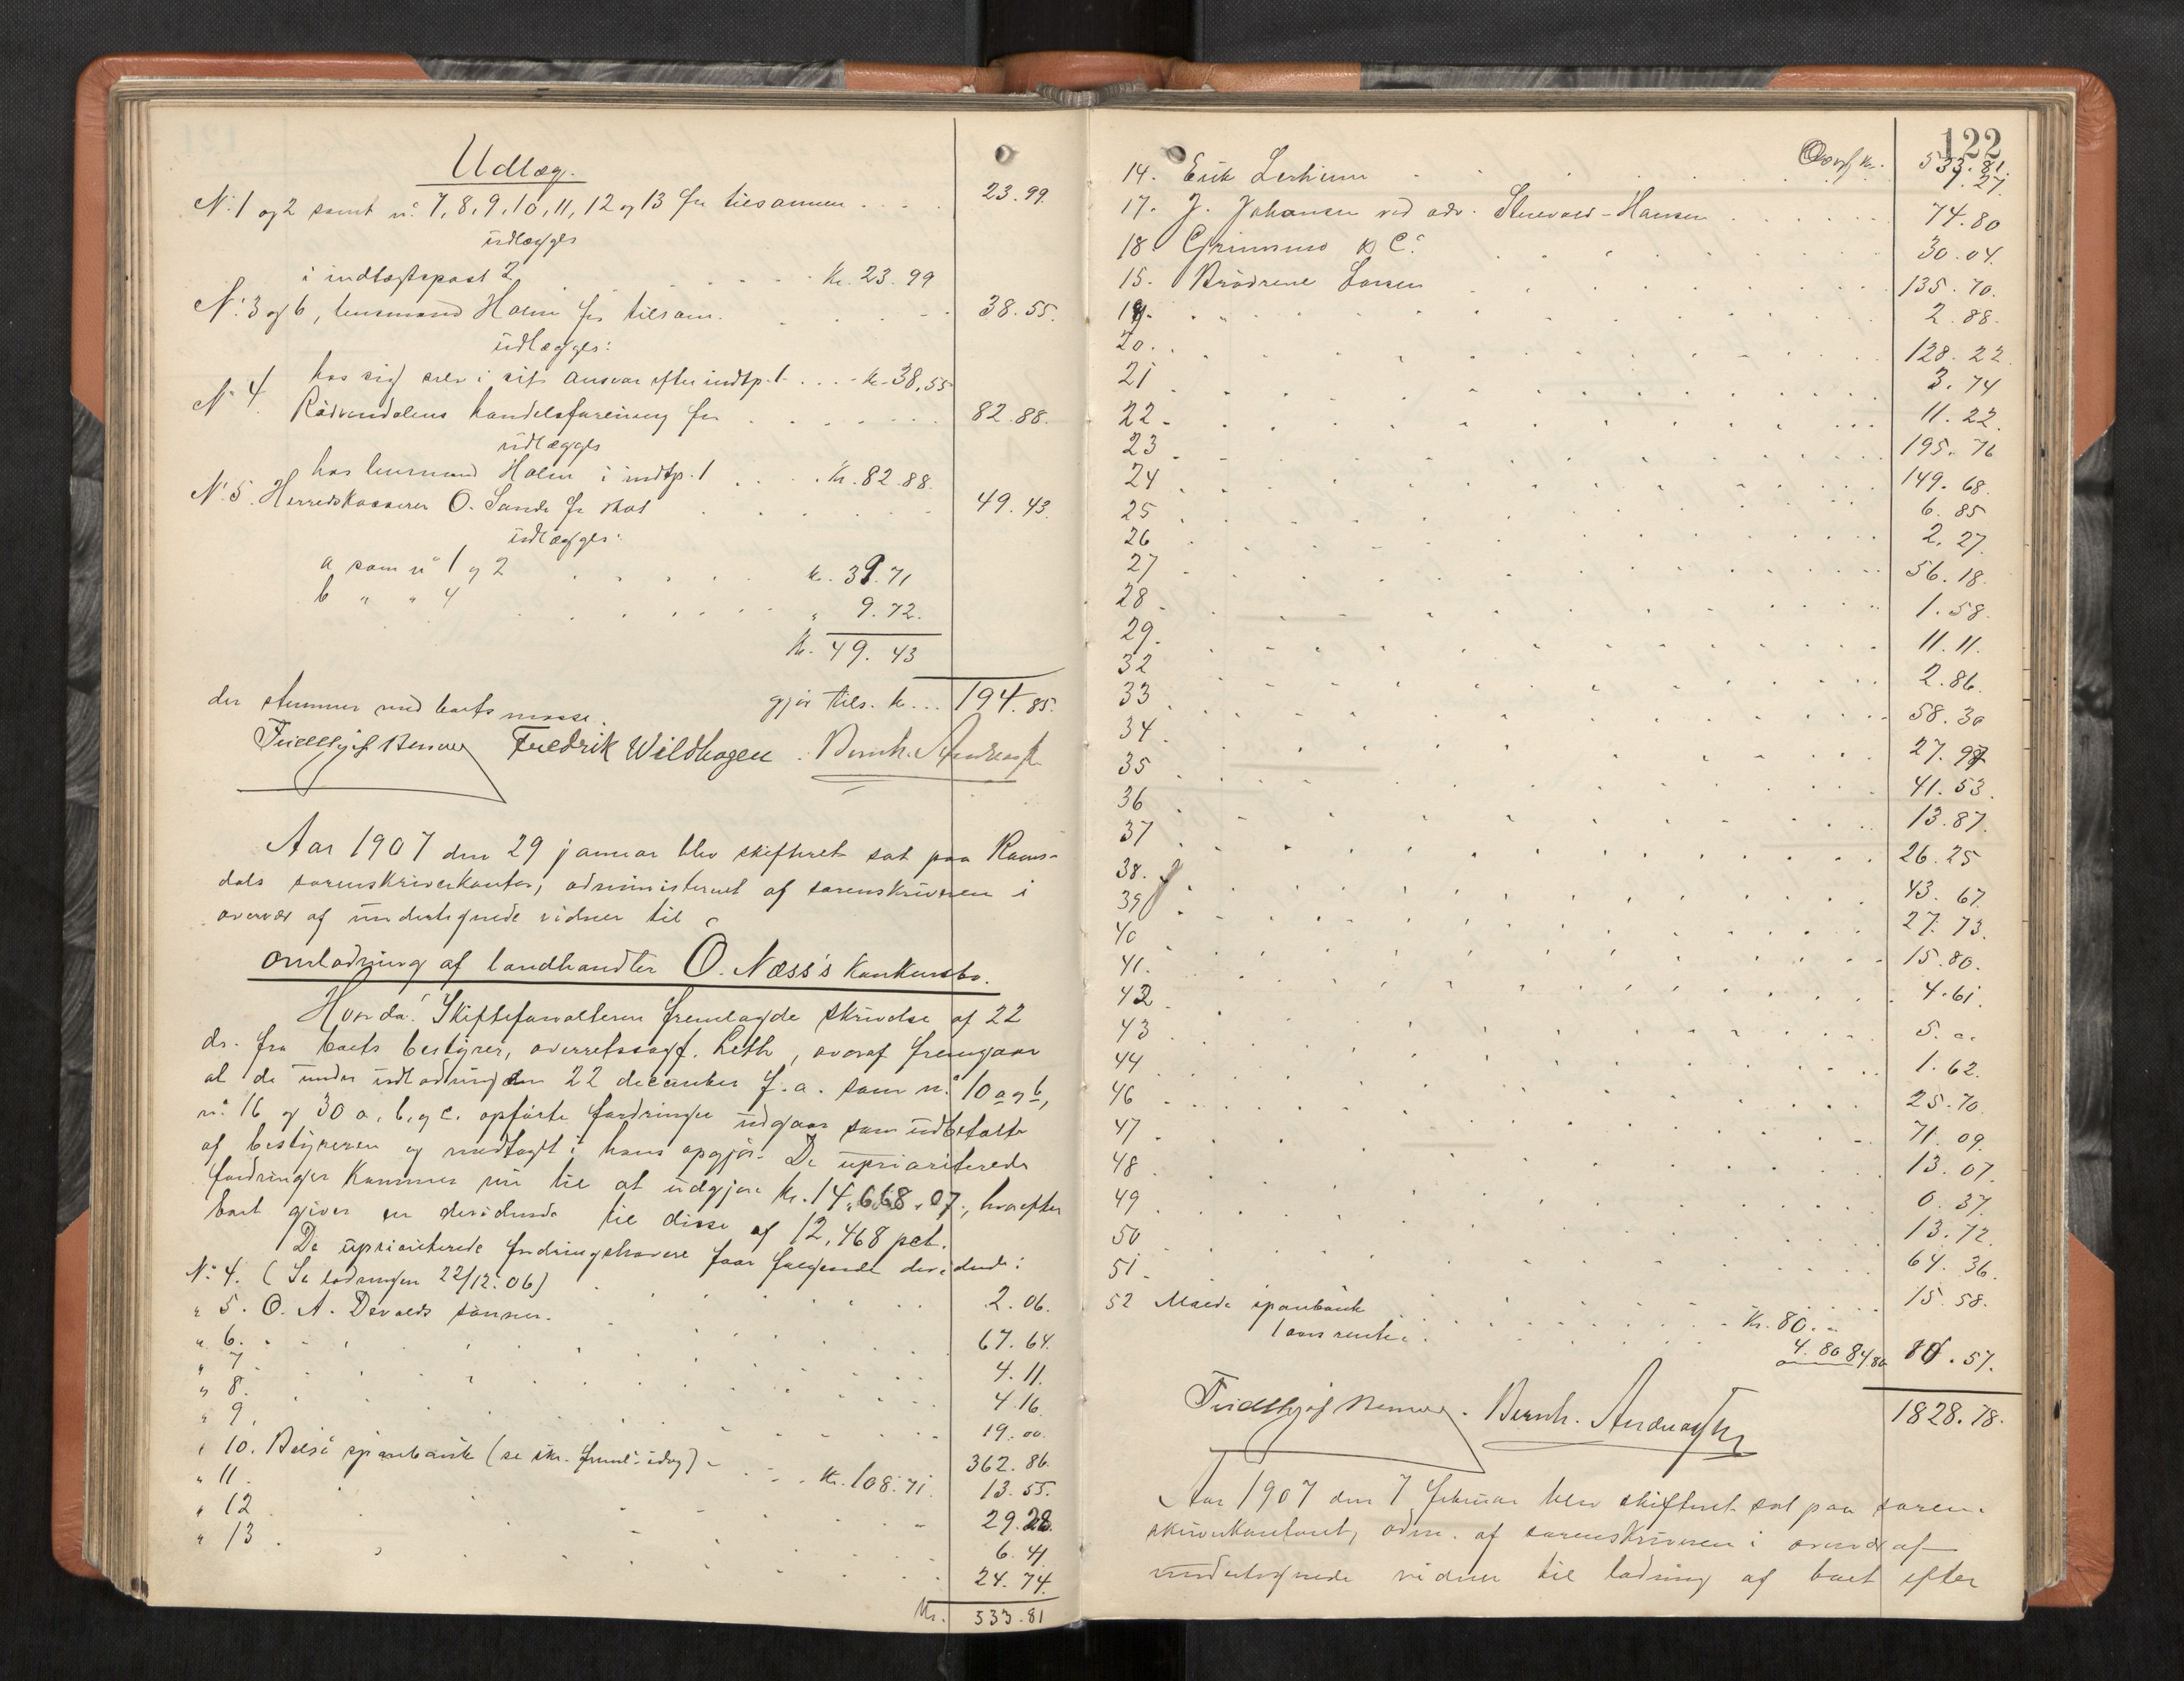 Udlæg.
No. 1 og 2 samt no. 7, 8, 9, 10, 11, 12 og 13 fr tilsammen .... 23.99
udlægges
i indtægtspost 2 ... Kr. 23.99
No. 3 og 6, lensmand Holm fr tilsam. .... 38.55.
udlægges:
hos sig selv i sit ansvar efter indtp. 1 .... Kr. 38,55
No. 4 Rødvendalens handelsforening fr ...... 82.88.
udlægges
hos lensmand Holm i indtp. 1 .... Kr. 82.88.
No. 5. Herredskasserer O. Sande fr skat ...... 49.43.
udlægges:
a som no 1 og 2 ..... kr. 39.71
b " " 4 ..... " 9.72.
Kr. 49.43
gjør tils. kr... 194.85.
der stemmer med boets masse.
Fredrik Wildhagen . Bernh. Andreas
Aar 1907 den 29 januar blev skifteret sat paa Roms-
dals sorenskriverkontor, administreret af sorenskriveren i
overvær af undertegnede vidner til
omlodning af landhandler O. Næss's Konkursbo.
Hvorda: Skifteforvalteren fremlagde skrivelse af 22
ds. fra boets bestyrer, overretssagf. Leth, hvoraf fremgaar
at de under udlodningen 22 december f.a. som no. 10 a og b,
no. 16 og 30 a, b, og c. opførte fordringer udgaar som udbetalte
af bestyreren og medtaget i hans opgjør. De upriariterede
fordringer kommer nu til at udgjøre kr. 14,668.07, hvorefter
boet giver en dividende til disse af 12,468 pct.
De upriariterede fordringshavere faar følgende dividende:
No. 4. (Se lodningen 22/12.06) ..... 2.06.
" 5. O. A. Devolds sønner. ..... 67.64.
" 6. ..... 4.11.
" 7 ..... 4.16.
" 8. ..... 19.00.
" 9. ..... 362.86.
" 10. Bolsø sparebank (se skr. freml. idag) - ... Kr. 108.71. 13.55.
" 11. ..... 29.28.
" 12 ..... 6.41
" 13. ..... 24.74.
Kr. 533.81
122
Overf. kr. 533.81.
14. Erik Lerheim ..... 7.27.
17. J. Johansen ved adv. Stuevold-Hansen ..... 74.80
18. Grimsmo & Co. ..... 30.04.
15. Brødrene Larsen ..... 135.70.
19. ..... 2.88.
20. ..... 128.22.
21 ..... 3.74
22 ..... 11.22.
23 ..... 195.76
24 ..... 149.68.
25 ..... 6.85
26 ..... 2.27.
27 ..... 56.18.
28 ..... 1.58.
29. ..... 11.11.
32 ..... 2.86.
33 ..... 58.30
34 ..... 27.97
35 ..... 41.53.
36 ..... 13.87.
37 ..... 26.25
38. ..... 43.67.
39 ..... 27.73.
40 ..... 15.80.
41. ..... 4.61.
42 ..... 5.00
43 ..... 1.62.
44 ..... 25.70.
46 ..... 71.09.
47 ..... 13.07.
48 ..... 0.37.
49 ..... 13.72.
50 ..... 64.36.
51. ..... 15.58.
52 Molde sparebank ..... Kr. 80.-
1 aars renter. ..... 4.80 84 80 80.57.
1828.78.
Bernh.
Aar 1907 den 7 februar blev skifteret sat paa soren-
skriverkontoret, adm. af sorenskriveren i overvær af
undertegnede vidner til lodning af boet efter